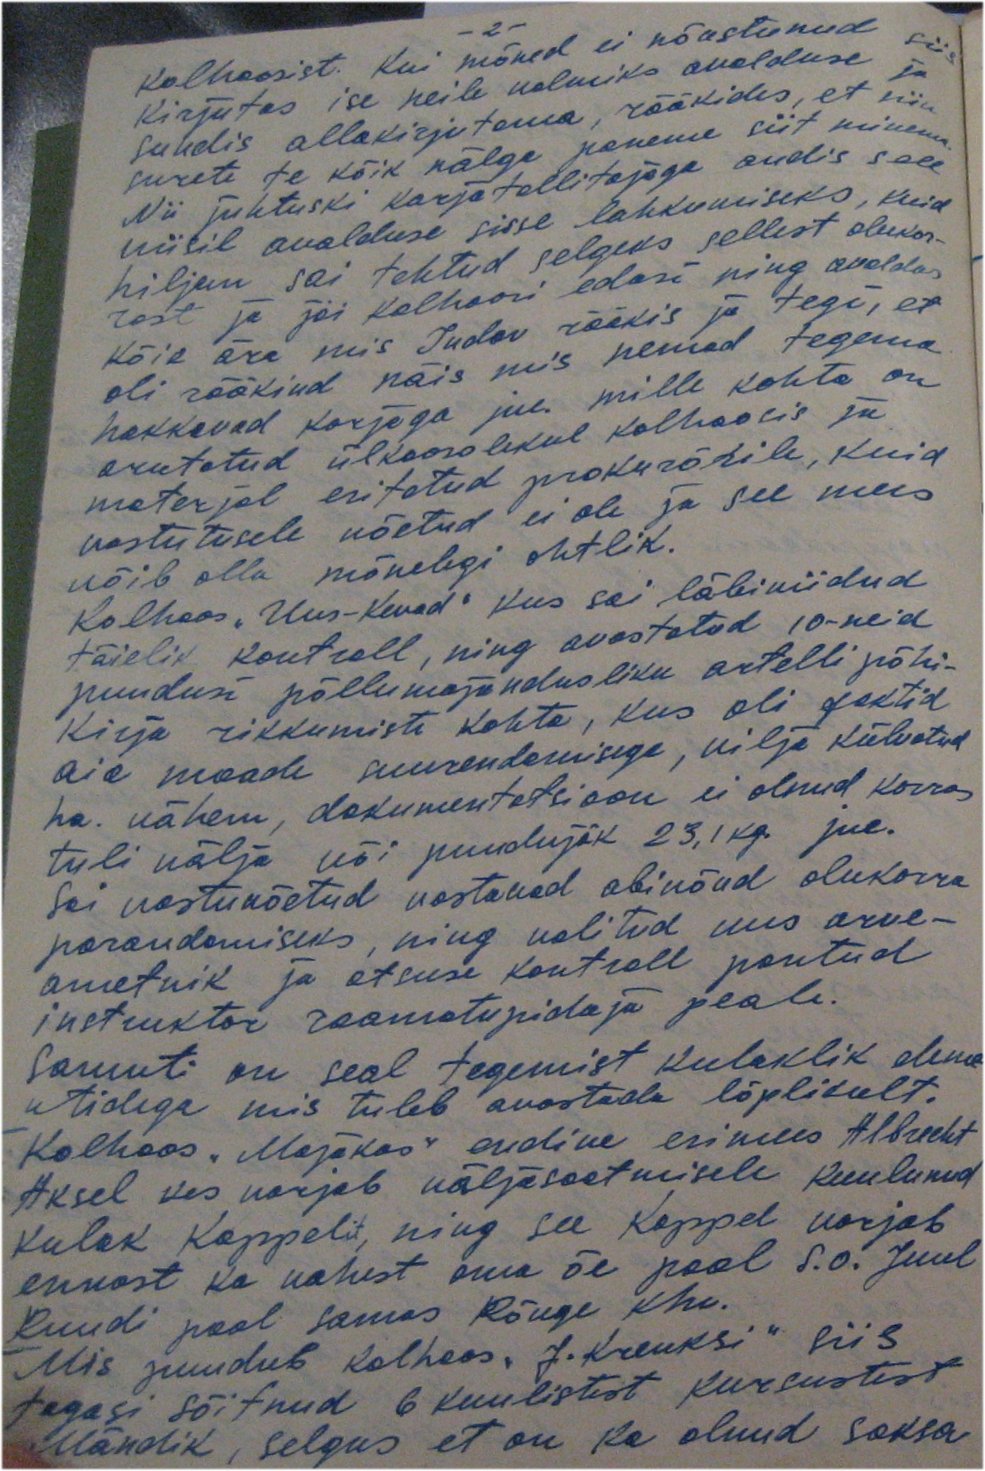 -2-
kolhoosist. Kui mõned ei nõustunud siis
kirjutas ise neile valmiks avalduse ja
sundis allakirjutama, rääkides, et niin
surete te kõik nälga paneme siit minema.
Nii juhtuski karjatallitajaga andis selle
viisil avalduse sisse lahkumiseks, kuid
hiljem sai tehtud selgeks sellest olukor-
rast ja jäi kolhoosi edasi ning avaldas
kõik ära mis Judov rääkis ja tegi, et
oli rääkind näis mis nemad tegema
hakkavad karjaga jne. mille kohta on
arutatud ülkoosolekul kolhoosis ja
materjal esitatud prokurörile, kuid
vastutusele võetud ei ole ja see mees
võib olla mõnelegi ohtlik.
Kolhoos „Uus-Kevad" kus sai läbiviidud
täielik kontroll, ning avastatud 10-neid
puudusi põllumajandusliku artelli põhi-
kirja rikkumiste kohta, kus oli faktid
aia maade suurendamisega, vilja külvatud
ha. vähem, dokumentatsioon ei olnud korras
tuli välja või puudujäk 23,1 kg. jne.
Sai vastuvõetud vastavad abinõud olukorra
parandamiseks, ning valitud uus arve-
ametnik ja otsuse kontroll pantud
instruktor raamatupidaja peale.
Samuti on seal tegemist kulaklik eleme
ntidega mis tuleb avastada lõplikult.
Kolhoos „Majakas" endine esimees Albrecht
Aksel kes varjab väljasaatmisele kuulunud
kulak Kappelit, ning see Kappel varjab
ennast ka vahest oma õe pool s.o. Juul
Ruudi pool samas Rõuge khn.
Mis puudub kolhoos „J. Kreuksi" siis
tagasi sõitnud 6 kuulistest kursustest
Mändik, selgus et on ka olnud saksa